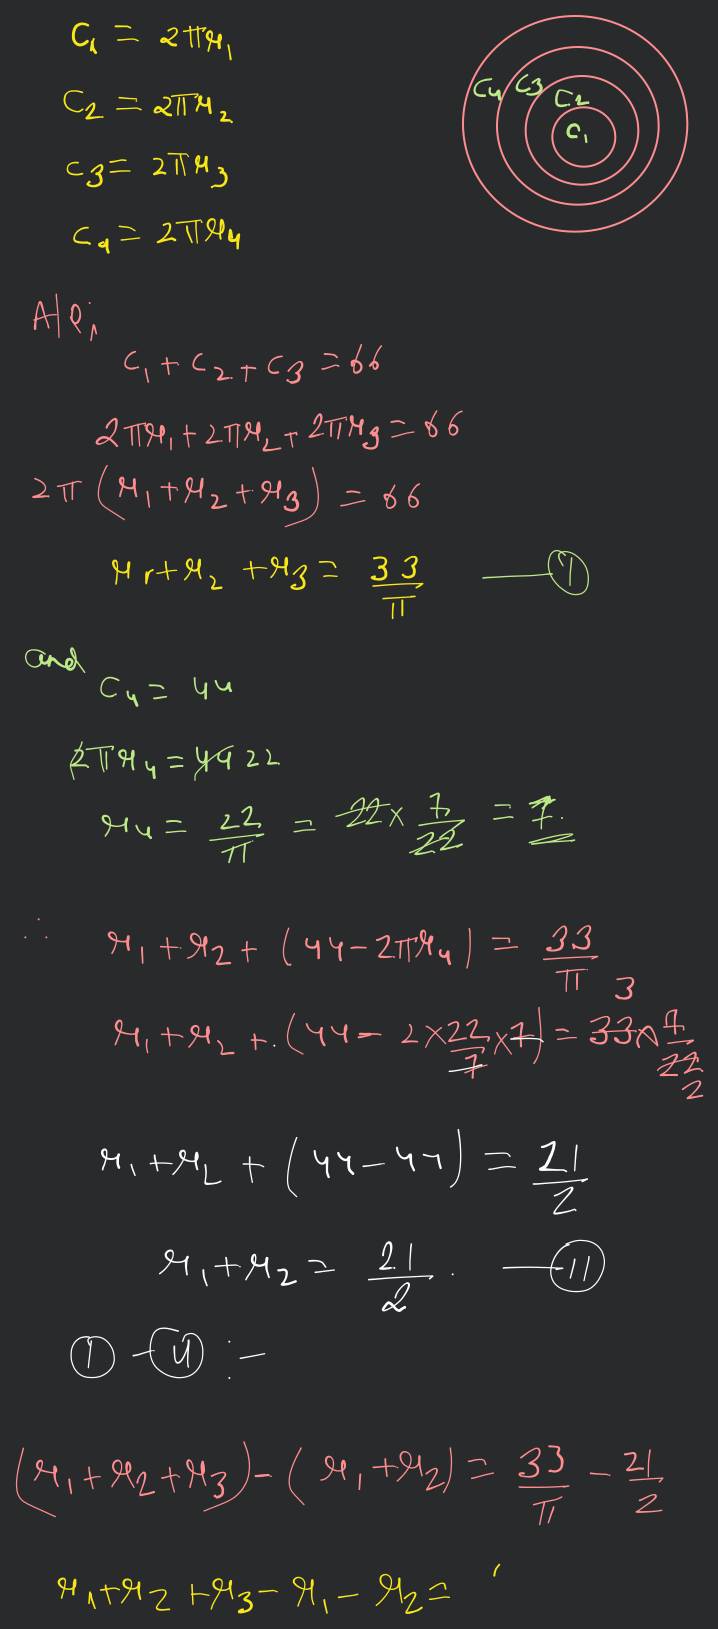 C₁ = 2πr₁
C₂ = 2πr₂
C₃ = 2πr₃
C₄ = 2πr₄
C₄ C₃ C₂ C₁
A/Q,
C₁ + C₂ + C₃ = 66
2πr₁ + 2πr₂ + 2πr₃ = 66
2π (r₁ + r₂ + r₃) = 66
r₁ + r₂ + r₃ = 33/π — (I)
and
C₄ = 44
2πr₄ = 44 22
r₄ = 22/π = 22 × 7/22 = 7.
∴ r₁ + r₂ + (44 - 2πr₄) = 33/π
r₁ + r₂ + (44 - 2 × 22/7 × 7) = 33 × 7/22 3 2
r₁ + r₂ + (44 - 44) = 21/2
r₁ + r₂ = 21/2. — (II)
(I) - (II) :-
(r₁ + r₂ + r₃) - (r₁ + r₂) = 33/π - 21/2
r₁ + r₂ + r₃ - r₁ - r₂ =